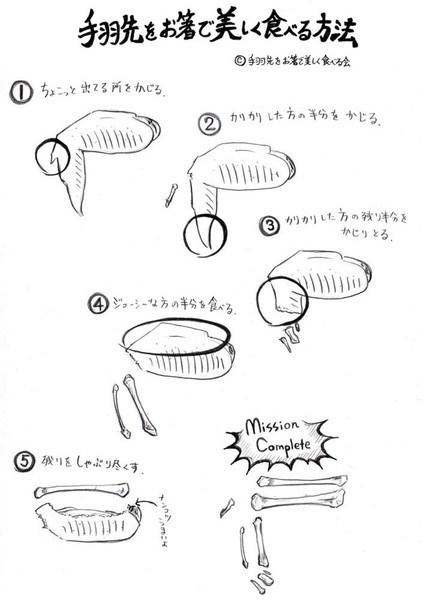 手羽先をお箸で美しく食べる方法
©手羽先をお箸で美しく食べる会
① ちょこっと出てる所をかじる.
② カリカリした方の半分をかじる.
③ カリカリした方の残り半分を
かじりとる.
④ ジューシーな方の半分を食べる.
⑤ 残りをしゃぶり尽くす.
ナンコツ
うまいよ
Mission
Complete